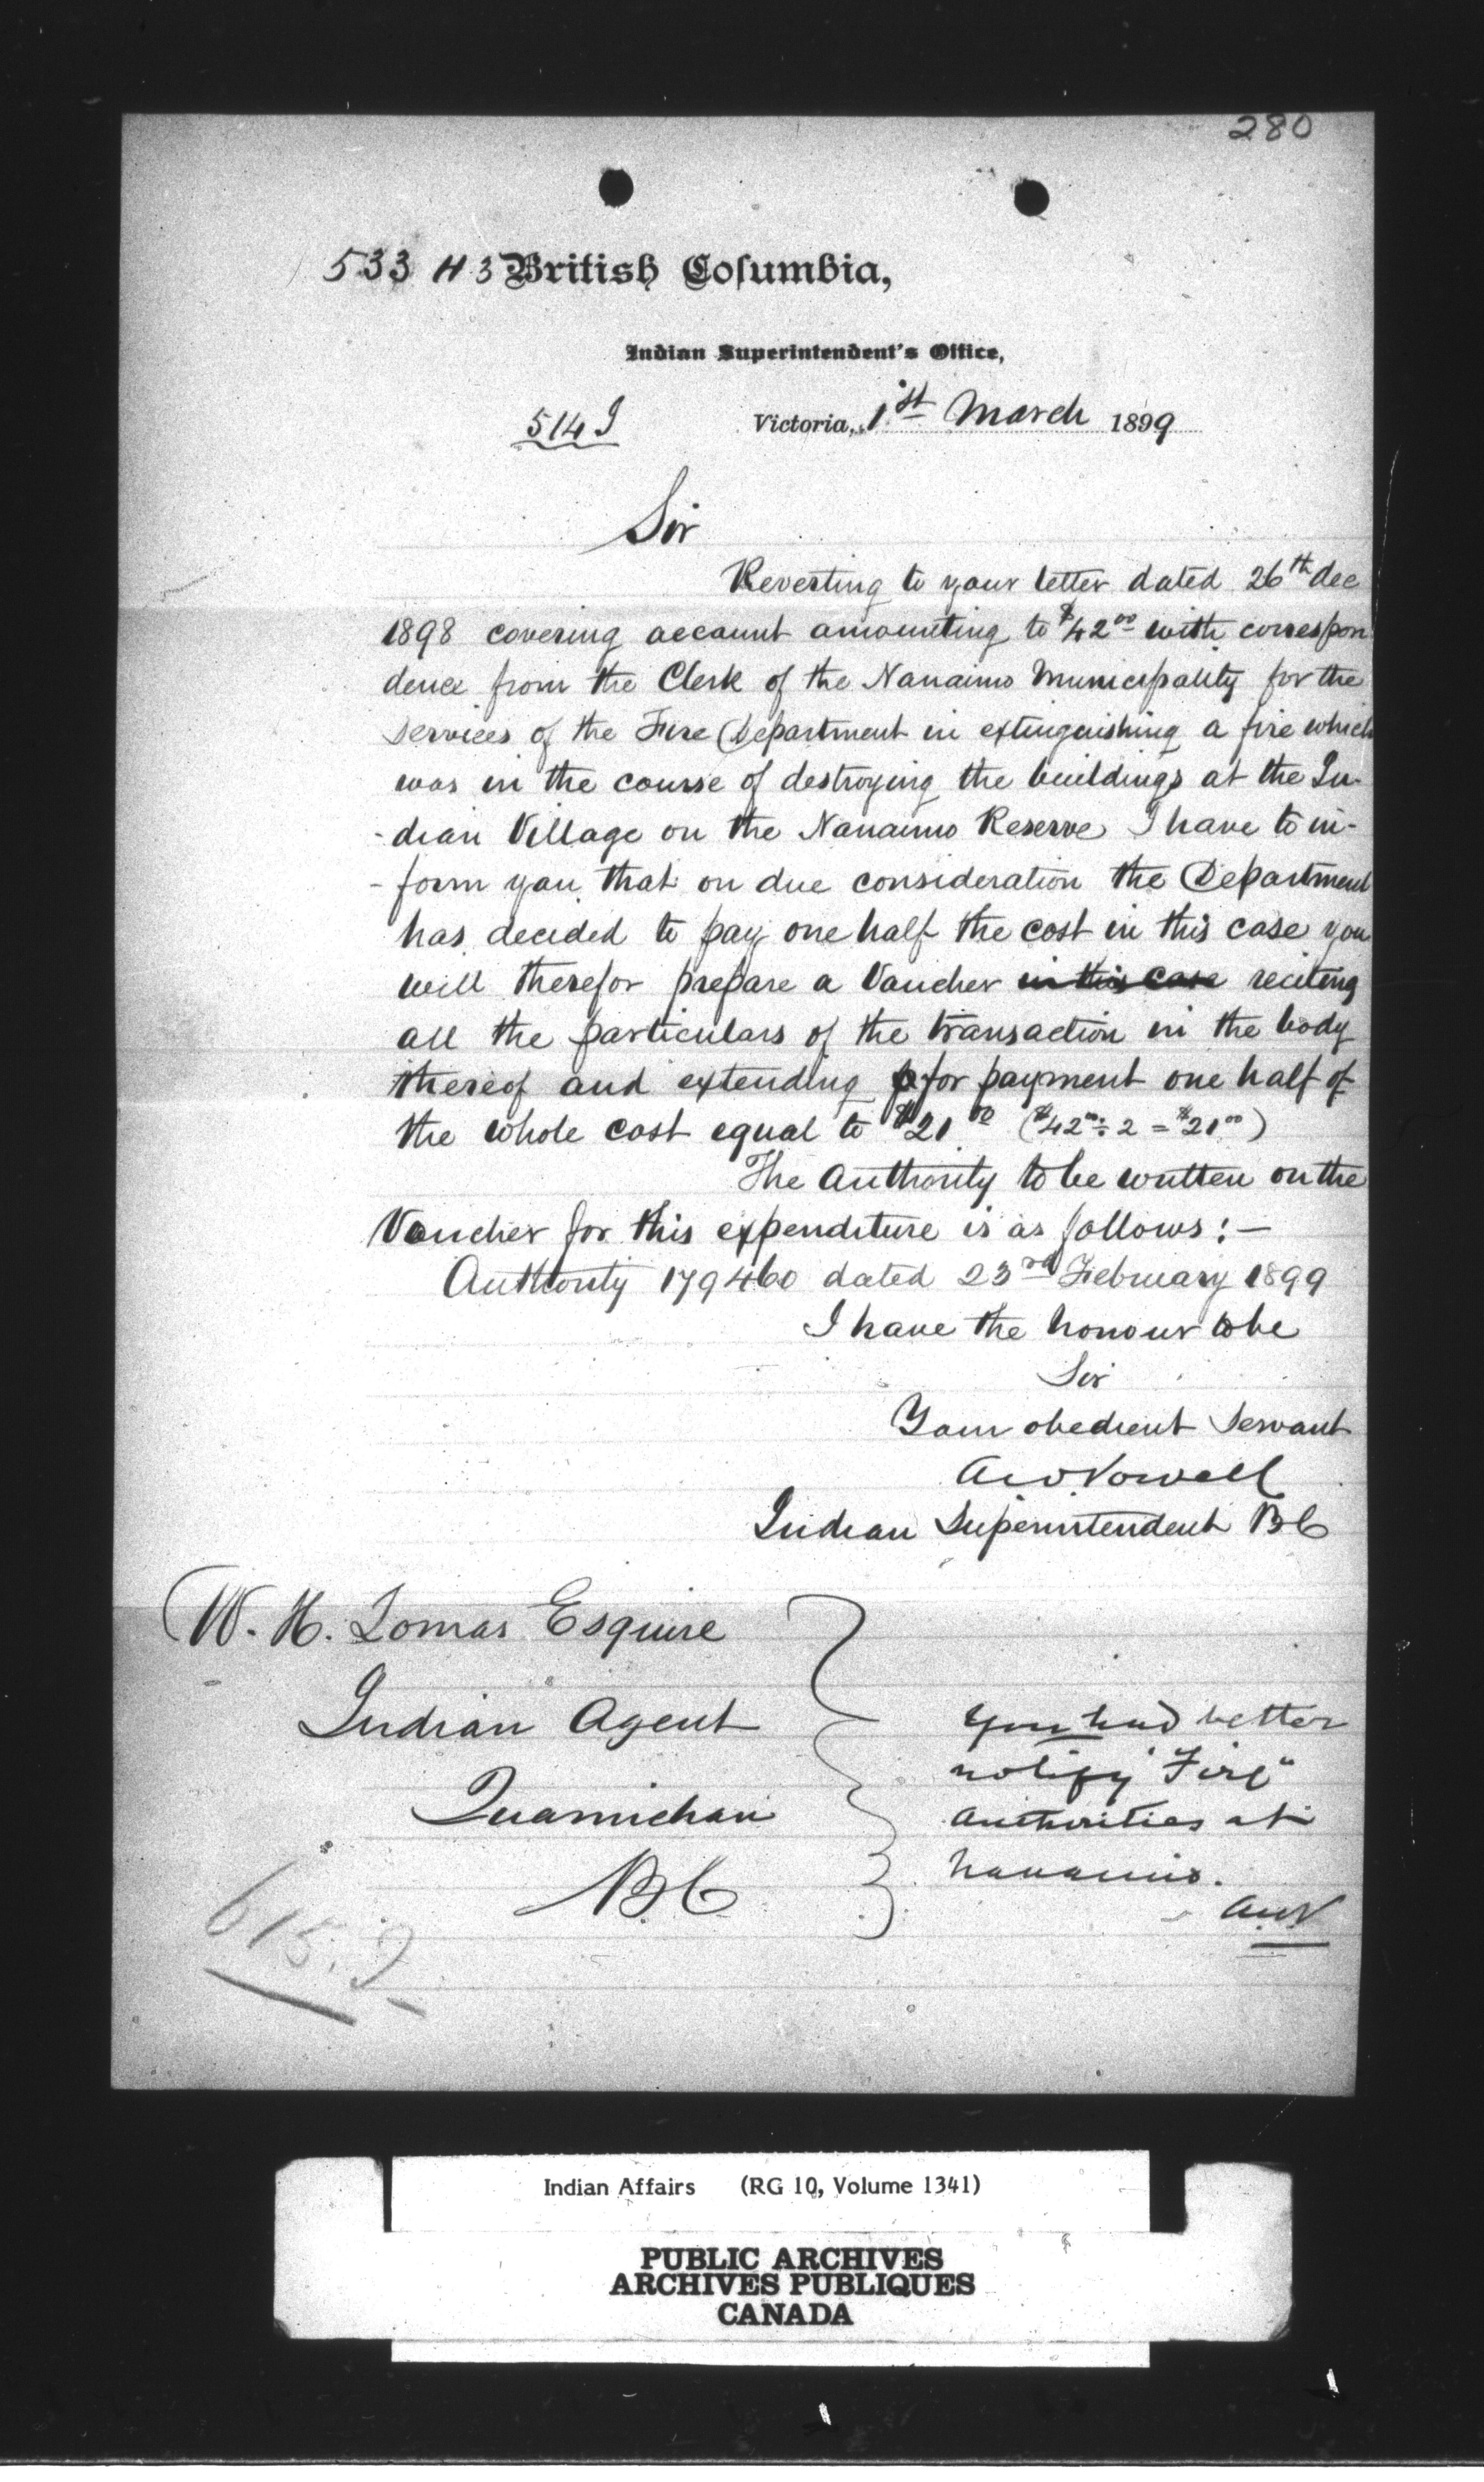 280
533 H 3 British Columbia,
Indian Superintendent's Office,
514 J Victoria, 1st March 1899
Sir
Reverting to your letter dated 26th dec
1898 covering account amounting to $42.00 with correspon
dence from the Clerk of the Nanaimo Municipality for the
services of the Fire Department in extinguishing a fire which
was in the course of destroying the buildings at the In-
-dian Village on the Nanaimo Reserve I have to in-
-form you that on due consideration the Department
has decided to pay one half the cost in this case you
will therefor prepare a Voucher in this case reciting
all the particulars of the transaction in the body
thereof and extending for payment one half of
the whole cost equal to $21.00 ($42.00 ÷ 2 = $21.00)
The Authority to be written on the
Voucher for this expenditure is as follows:—
Authority 179460 dated 23rd February 1899
I have the honour to be
Sir
Your obedient Servant
A.W. Vowell
Indian Superintendent BC
W. H. Lomas Esquire
Indian Agent
Quamichan
BC
You had better
notify "Fire"
authorities at
Nanaimo.
AWV
Indian Affairs (RG 10, Volume 1341)
PUBLIC ARCHIVES
ARCHIVES PUBLIQUES
CANADA